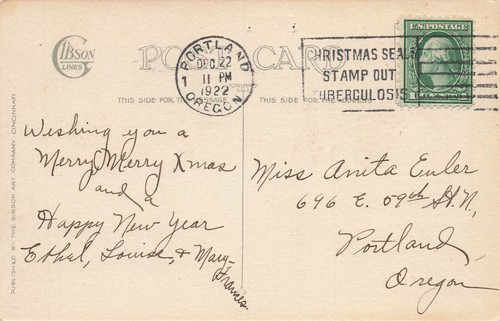 GIBSON
LINES
POST CARD
PORTLAND
DEC. 22
11 PM
1922
OREGON
1
CHRISTMAS SEALS
STAMP OUT
TUBERCULOSIS
U.S. POSTAGE
THIS SIDE FOR THE MESSAGE
THIS SIDE FOR THE ADDRESS
PUBLISHED BY THE GIBSON ART COMPANY, CINCINNATI
Wishing you a
Merry, Merry Xmas
and a
Happy New Year
Ethel, Louise, & Mary-
Frances.
Miss Anita Euler
696 E.
Portland
Oregon